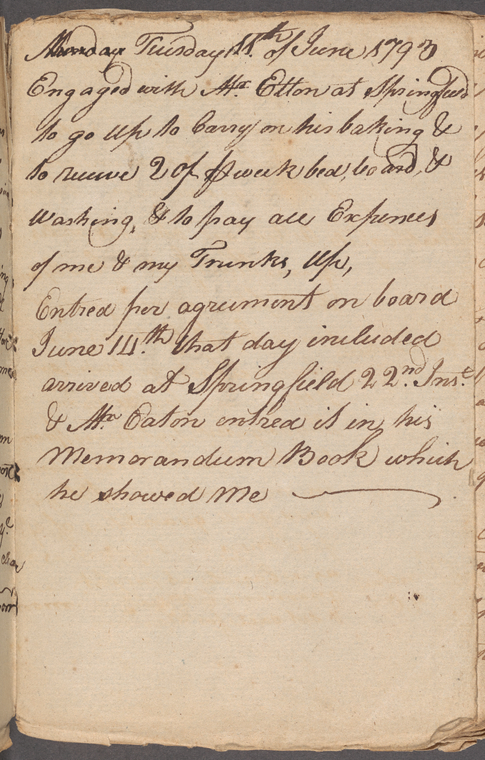 Monday Tuesday 11th of June 1793
Engaged with Mr Etton at Springfield
to go up to Carry on his baking &
to receive 20/ ꝑ week bed, board, &
washing, & to pay all Expences
of me & my Trunks, Up,
Entred per agrument on board
June 14th that day included
arrived at Springfield 22nd Inst
& Mr Eaton entred it in his
Memorandum Book which
he showed me